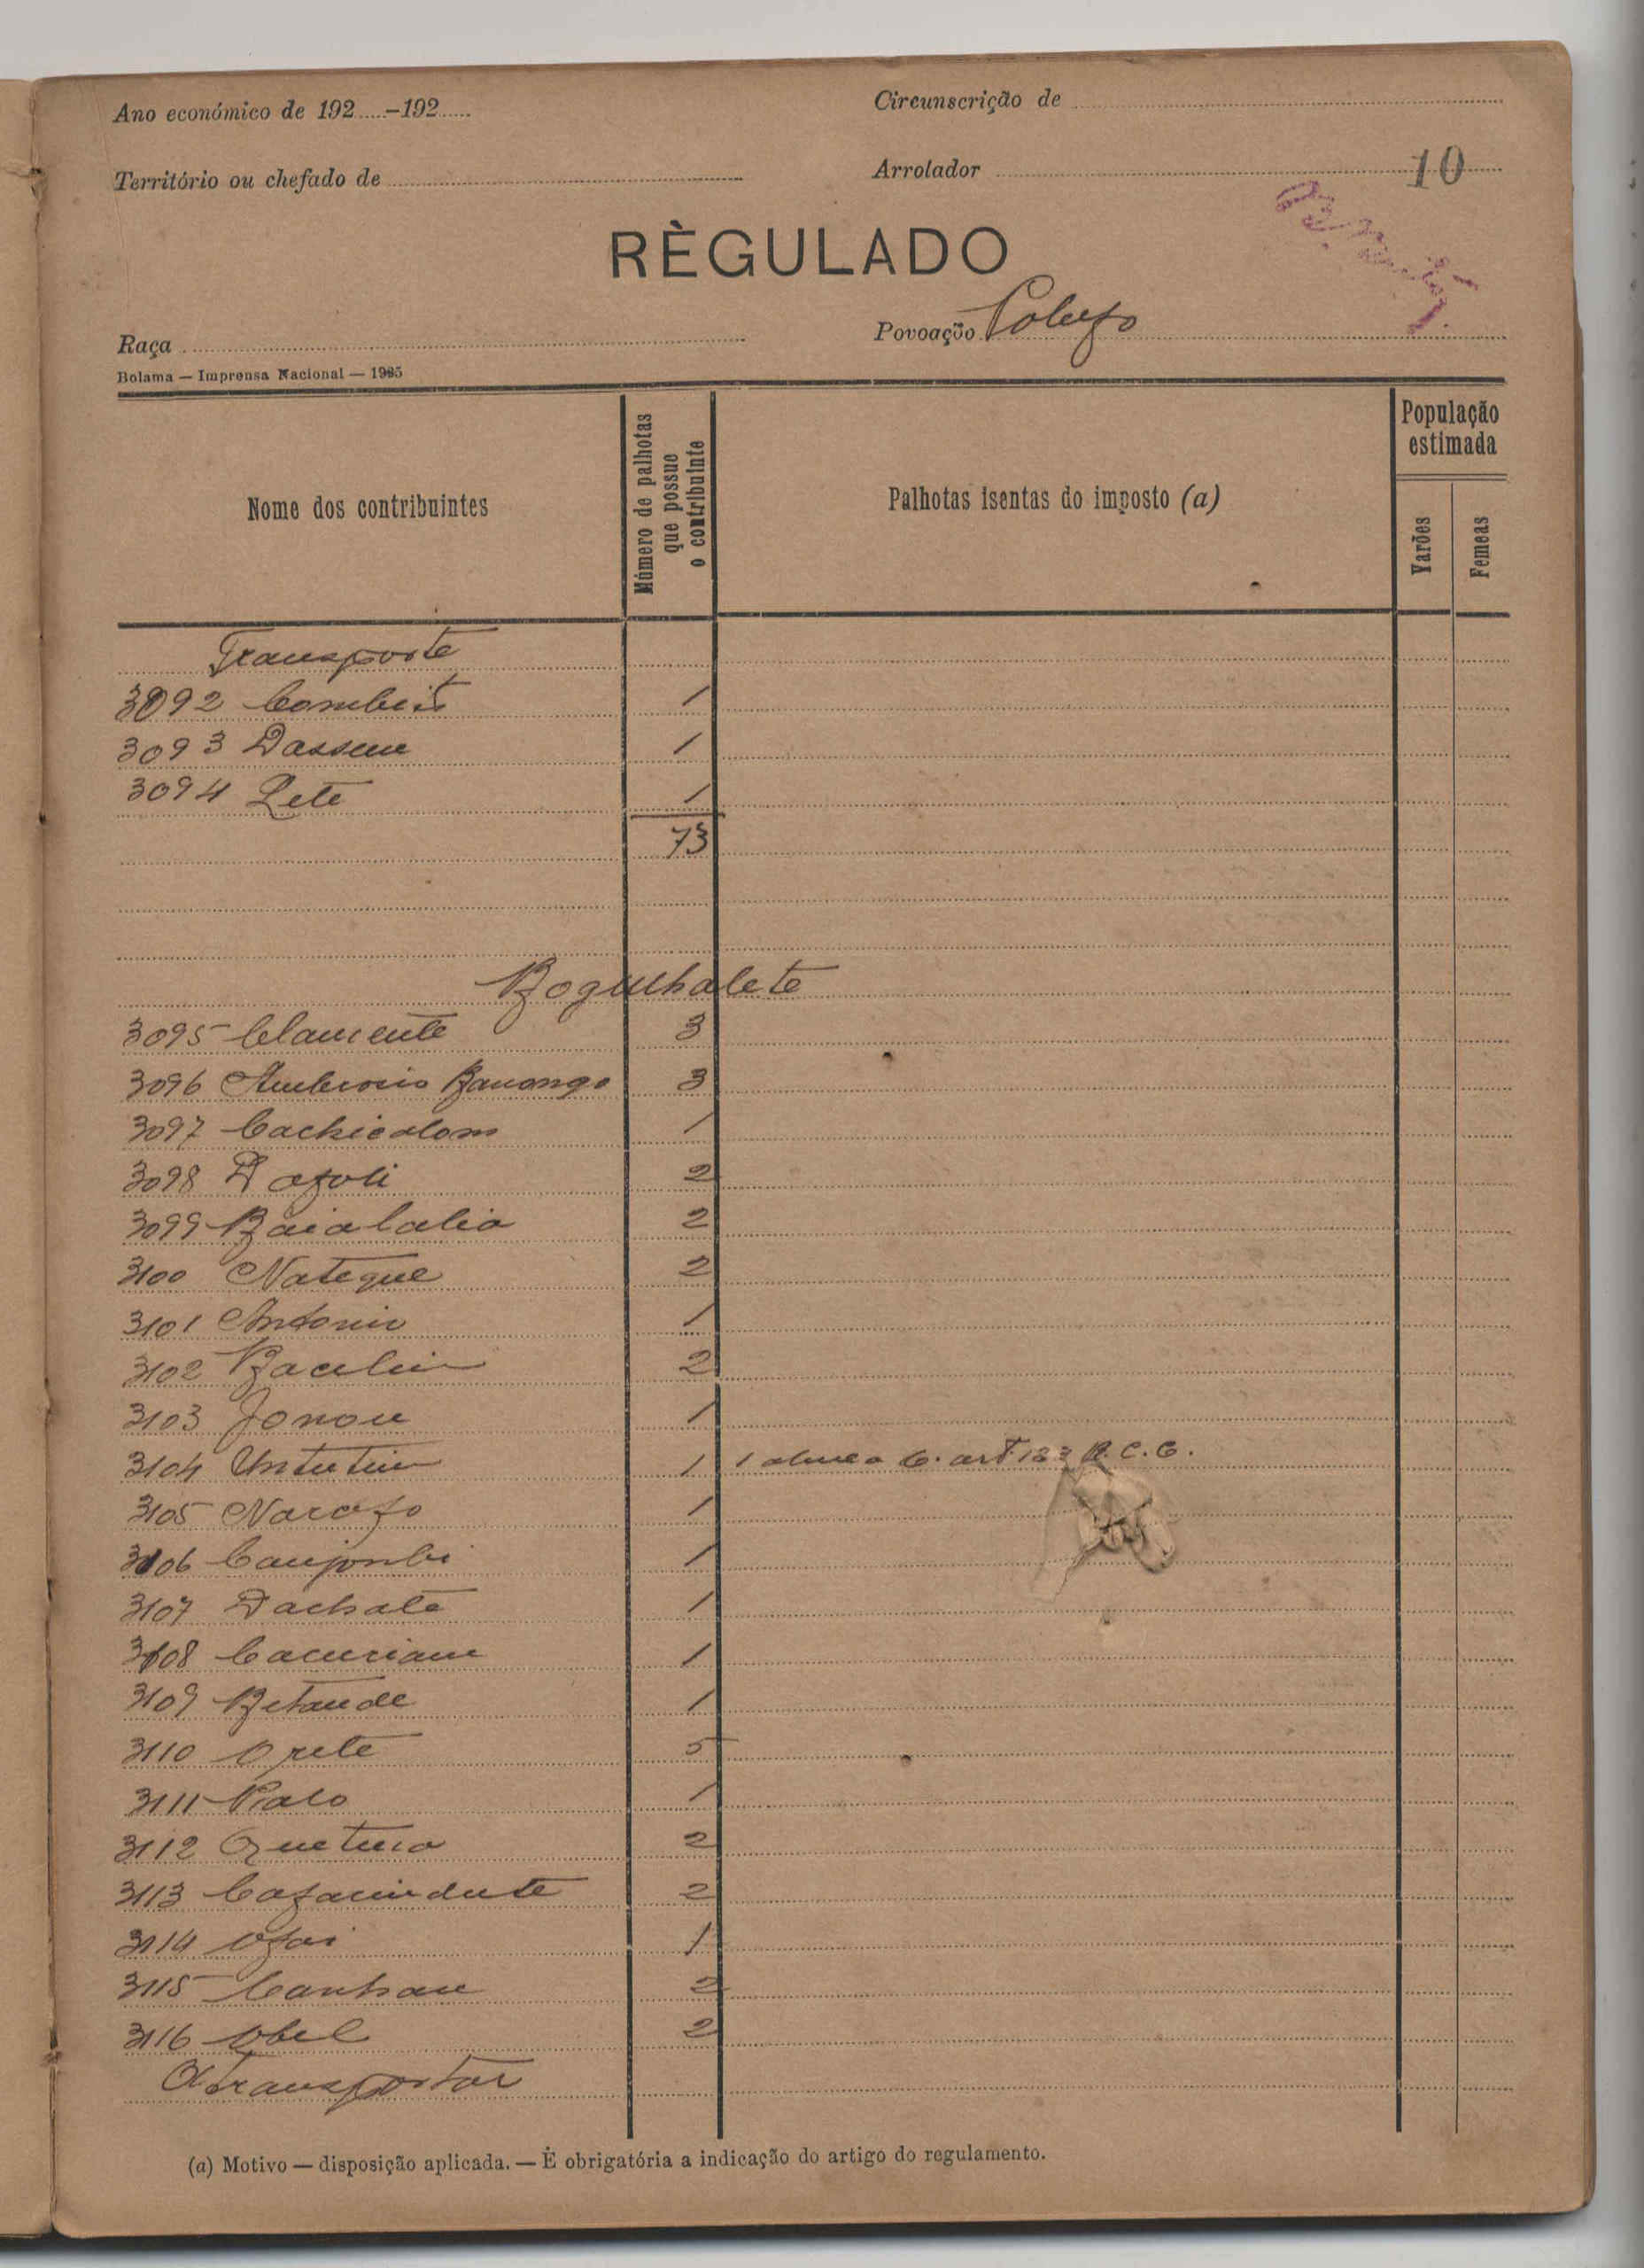 Ano económico de 192.....-192.....
Circunscrição de
Território ou chefado de
Arrolador
10
RÈGULADO
Raça
Povoação
Bolama — Imprensa Nacional — 1925
Nome dos contribuintes
Número de palhotas que possue o contribuinte
Palhotas isentas do imposto (a)
População estimada
Varões
Femeas
Transporte
3092 1
3093 Dassem 1
3094 Lete 1
73
Bogulhalete
3095 Clamente 3
3096 Ambrosio Banongo 3
3097 Cachicolom 1
3098 Dofoli 2
3099 Baialalia 2
3100 Nateque 2
3101 Antonio 1
3102 2
3103 Jonou 1
3104 Untutim 1 1 alinea b. art 133 R.C.C.
3105 Narofo 1
3106 1
3107 Dachate 1
3108 1
3109 Betande 1
3110 Orete 5
3111 Pialo 1
3112 2
3113 2
3114 Ofai 1
3115 Canhau 2
3116 Obel 2
A transportar
(a) Motivo — disposição aplicada. — É obrigatória a indicação do artigo do regulamento.